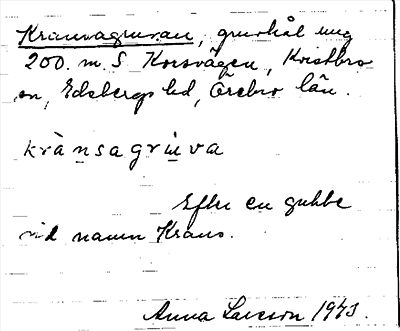 Kransagruvan, gruvhål ung
200. m. S Korsvägen, Kvistbro
sn, Edsbergs hd, Örebro län.
krànsagruva
Efter en gubbe
vid namn Krans.
Anna Larsson 1943.